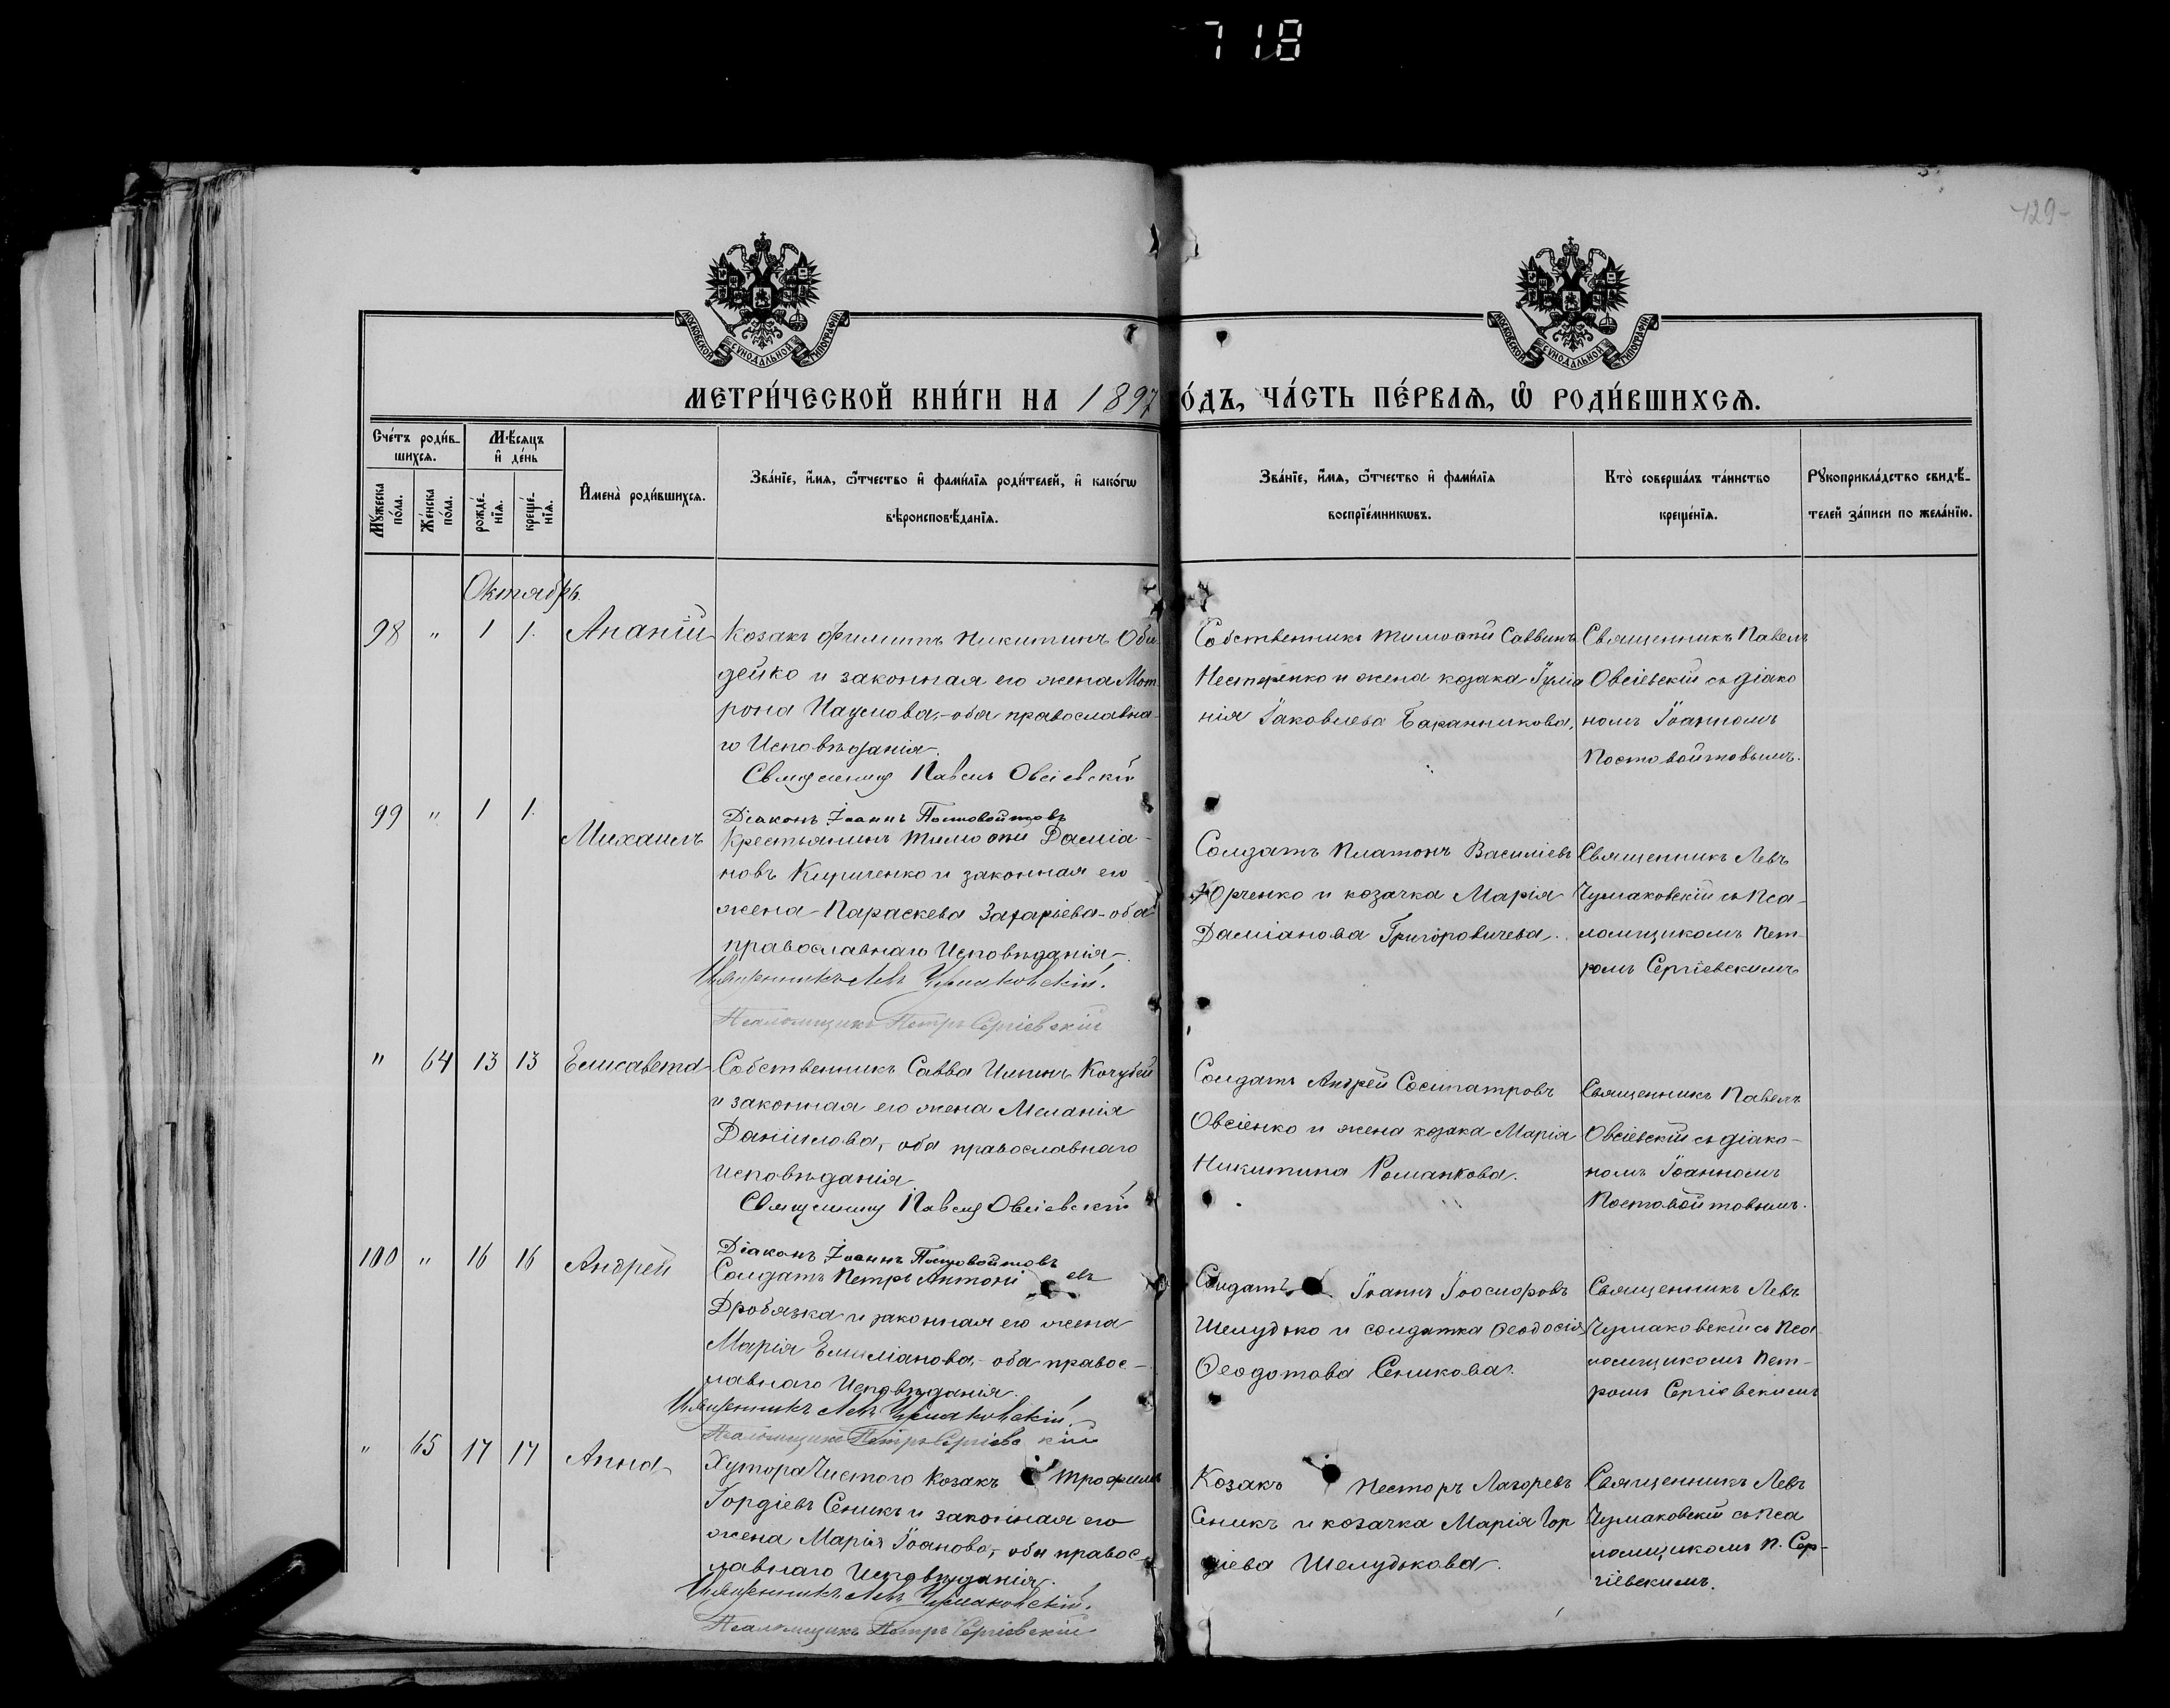 718
129
МОСКОВСКОЙ СѴНОДАЛЬНОЙ ТИПОГРАФІИ
МОСКОВСКОЙ СѴНОДАЛЬНОЙ ТИПОГРАФІИ
МЕТРИ́ЧЕСКОЙ КНИ́ГИ НА 1897 О́ДЪ, ЧА́СТЬ ПЕ́РВАѦ, Ѿ РОДИ́ВШИХСѦ.
Сче́тъ роди́в-
шихсѧ.
Мꙋ́жеска по́ла.
Же́нска по́ла.
Мѣ́сѧцъ
и҆ де́нь
рожде́-
нїѧ.
креще́-
нїѧ.
И҆мена̀ роди́вшихсѧ.
Зва́нїе, и҆́мѧ, ѻ҆́тчество и҆ фами́лїѧ роди́телей, и҆ како́гѡ
вѣроисповѣ́данїѧ.
Зва́нїе, и҆́мѧ, ѻ҆́тчество и҆ фами́лїѧ
воспрїе́мникѡвъ.
Кто̀ соверша́лъ та́инство
креще́нїѧ.
Рꙋкоприкла́дство свидѣ́-
телей за́писи по жела́нїю.
Октябрь.
98 " 1 1. Ананій
Козакъ Филиппъ Никитинъ Оби
дейко и законная его жена Мот
рона Наумова,-оба православна-
го Исповѣданія.
Священникъ Павелъ Овсіевскій
Діаконъ Іоаннъ Постовойтовъ
Собственникъ Тимоѳей Саввинъ
Нестеренко и жена козака Іулiа
нія Іаковлева Баранникова,
Священникъ Павелъ
Овсіевскій съ діако
номъ Іоанномъ
Постовойтовымъ.
99 " 1 1. Михаилъ
Крестьянинъ Тимоѳей Даміа-
новъ Кириченко и законная его
жена Параскева Захаріева-оба
православнаго Исповѣданія.
Священникъ Левъ Чумаковскій.
Псаломщикъ Петръ Сергіевскій
Солдатъ Платонъ Василіевъ
Юрченко и козачка Марія
Даміанова Григоровичева.
Священникъ Левъ
Чумаковскій съ Пса-
ломщикомъ Пет-
ромъ Сергіевскимъ
" 64 13 13 Елисавета
Собственникъ Савва Илiинъ Кочубей
и законная его жена Меланія
Даніилова, оба православнаго
исповѣданія
Священникъ Павелъ Овсіевскій
Діаконъ Іоаннъ Постовойтовъ
Солдатъ Андрей Сосипатровъ
Овсіенко и жена козака Марія
Никитина Романкова.
Священникъ Павелъ
Овсіевскій съ діако-
номъ Іоанномъ
Постовойтовымъ.
100 " 16 16 Андрей
Солдатъ Петръ Антоні евъ
Дробязка и законная его жена
Марія Емиліанова,-оба правос-
лавнаго Исповѣданія.
Священникъ Левъ Чумаковскій.
Псаломщикъ Петръ Сергіевскій
Солдатъ Іоаннъ
Шелудько и солдатка Ѳеодосія
Ѳеодотова Сеникова.
Священникъ Левъ
Чумаковскій съ Пса
ломщикомъ Пет-
ромъ Сергіевскимъ
" 65 17 17 Анна
Хутора Чистого Козакъ Трофимъ
Гордіевъ Сеникъ и законная его
жена Марія Іоанова, оба правос-
лавнаго Исповѣданія.
Священникъ Левъ Чумаковскій.
Псаломщикъ Петръ Сергіевскій
Козакъ Несторъ Лазоревъ
Сеникъ и козачка Марія Гор
діева Шелудькова.
Священникъ Левъ
Чумаковскій съ Пса
ломщикомъ П. Сер-
гіевскимъ.